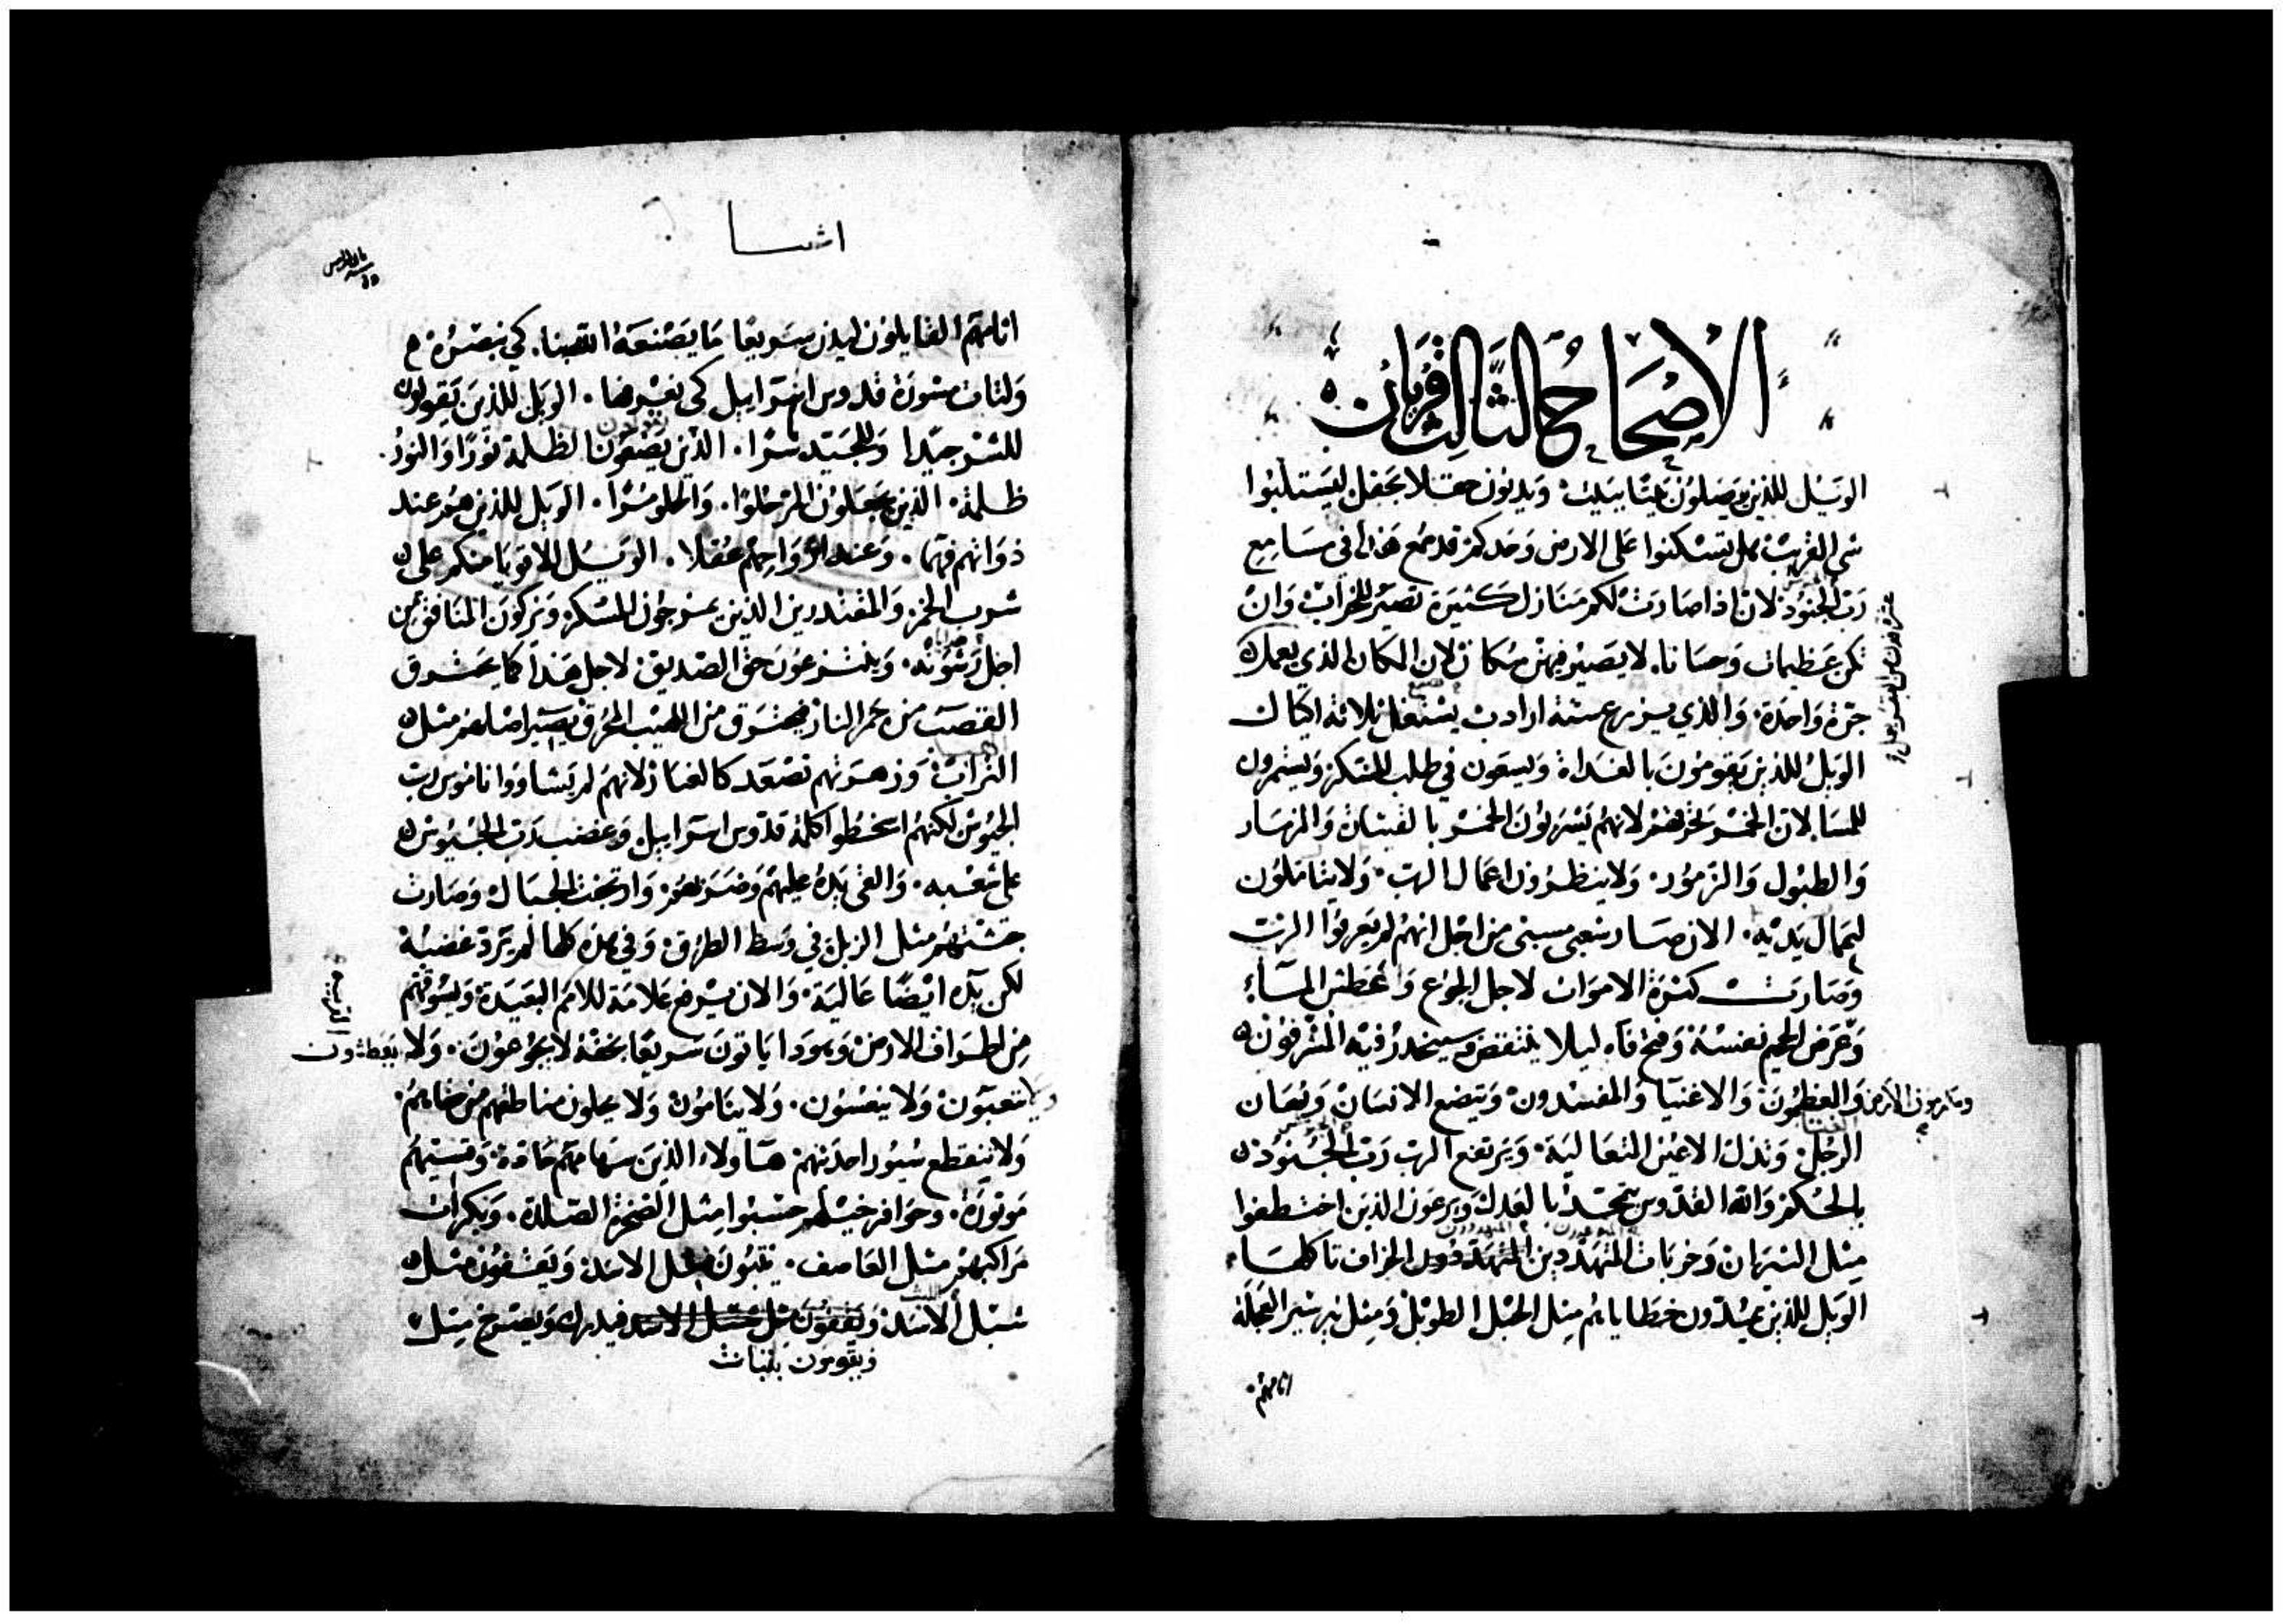 الاصحاح الثالث قربان
الويل للذين يصلون بيتا ببيت ويدنون حقلا بحقل ليستلبوا
شى القريب هل تسكنوا على الارض وحدكم قد سمع هذا فى مسامع
رب الجنود لان اذا صارت لكم منازل كثيرة تصير للخراب وان
تكن عظيمات وحسانا لا يصير فيهن سكان لان المكان الذي يعمل
جرة واحدة والذي يزرع ستة ارادب يستغل ثلاثة اكيال
الويل للذين يقومون بالغداة ويسعون في طلب المسكر ويسهرون
للمسا لان الخمر تحرقهم لانهم يشربون الخمر بالقيثارة والمزمار
والطبول والزمور ولا ينظرون اعمال الرب ولا يتاملون
اعمال يديه الان صار شعبى مسبى من اجل انهم لم يعرفوا الرب
وصارت كثرة الاموات لاجل الجوع والعطش الماء
وعرض الجحيم نفسه وفتح فاه ليلا ينتقص وسينحدر فيه المشرفون
والعظيمون والاغنيا والمفسدون ويتضع الانسان ويهان
الرجل وتذل الاعين المتعالية ويرتفع الرب رب الجنود
بالحكم والله القدوس يتمجد بالعدل ويرعون الذين اختطفوا
مثل الثيران وخربات المتهددين الخراف تاكلها
الويل للذين يمدون خطاياهم مثل الحبل الطويل ومثل نير شبر العجلة
اثامهم
اشعيا
اثامهم القايلون ليدن سريعا ما يصنعه الهنا كي نبصره
ولتات مشورة قدوس اسراييل كى نعرفها الويل للذين يقولون
للشر جيدا وللجيد شرا الذين يضعون الظلمة نورا والنور
ظلمة الذين يجعلون المر حلوا والحلو مرا الويل للذين هم عند
ذواتهم فهما وعند ارواحهم عقلا الويل للاقويا منكم على
شرب الخمر والمقتدرين الذين يمزجون المسكر ويزكون المنافق من
اجل رشوته وينتزعون حق الصديق لاجل هذا كما يحترق
القصب من جمر النار فيحترق من اللهيب المحرق يصير اصلهم مثل
التراب وزهرتهم تصعد كالغبار لانهم لم يشاووا ناموس رب
الجيوش لكنهم اسخطوا كلمة قدوس اسراييل وغضب رب الجيوش
على شعبه والقى يده عليهم وضربهم وارتجفت الجبال وصارت
جثثهم مثل الزبل في وسط الطرق وفي هذه كلها لم يرد غضبه
لكن يده ايضا عالية والان يرفع علامة للامم البعيدة ويسوقهم
من اطراف الارض وهودا ياتون سريعا بخفة لا يجوعون ولا يعطشون
يتعبون ولا ينعسون ولا ينامون ولا يحلون مناطقهم من حقايهم
ولا ينقطع سيور احذيتهم هاولاء الذين سهامهم حادة وقسيهم
موتورة وحوافر خيلهم حسبوا مثل الصخرة الصلدة وبكرات
مراكبهم مثل العاصف يثبون مثل الاسد ويقفون مثل
شبل الاسد فيدرك ويصرخ مثل
ويقومون بثبات